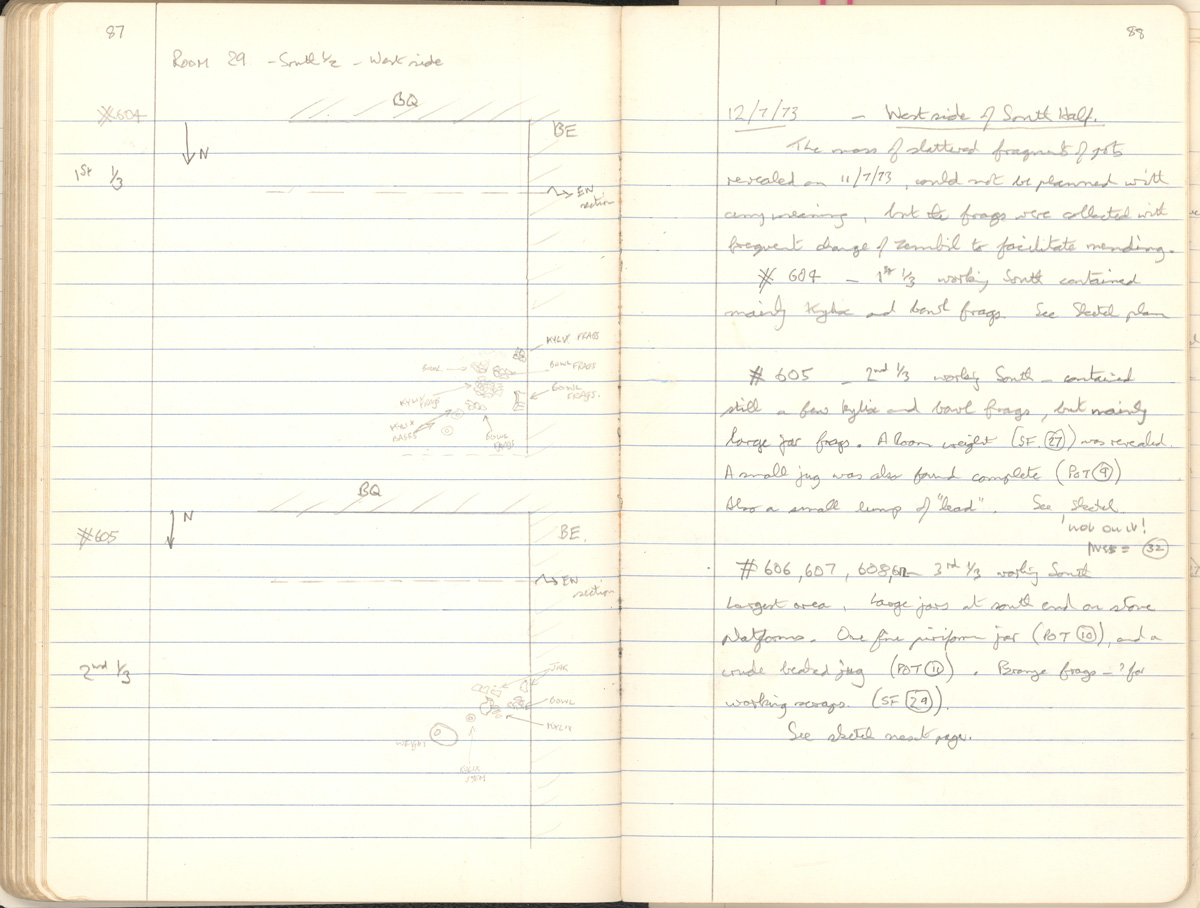 87
ROOM 29 - South 1/2 - West side
#604
BQ
BE
N
1st 1/3
EN section
KYLIX FRAGS
BOWL
BOWL FRAGS
KYLIX FRAGS
BOWL FRAGS.
KYLIX BASES
BOWL FRAGS
BQ
N
#605
BE.
EN section
2nd 1/3
JAR
BOWL
KYLIX
WEIGHT
KYLIX STEM
88
12/7/73 - West side of South Half.
The mass of shattered fragments of pots
revealed on 11/7/73, could not be planned with
any meaning, but the frags were collected with
frequent change of zembil to facilitate mending.
# 604 - 1st 1/3 working South contained
mainly Kylix and bowl frags. See Sketch plan
# 605 - 2nd 1/3 working South - contained
still a few kylix and bowl frags, but mainly
large jar frags. A loom weight (SF. 27) was revealed.
A small jug was also found complete (POT 9)
Also a small lump of "lead". See Sketch
'not on it!
32
# 606, 607, 608, 3rd 1/3 working South
Largest area. Large jars at south end on stone
platforms. One fine piriform jar (POT 10), and a
crude beaked jug (POT 11). Bronze frags - ? for
working scraps. (SF 29).
See sketch next page.